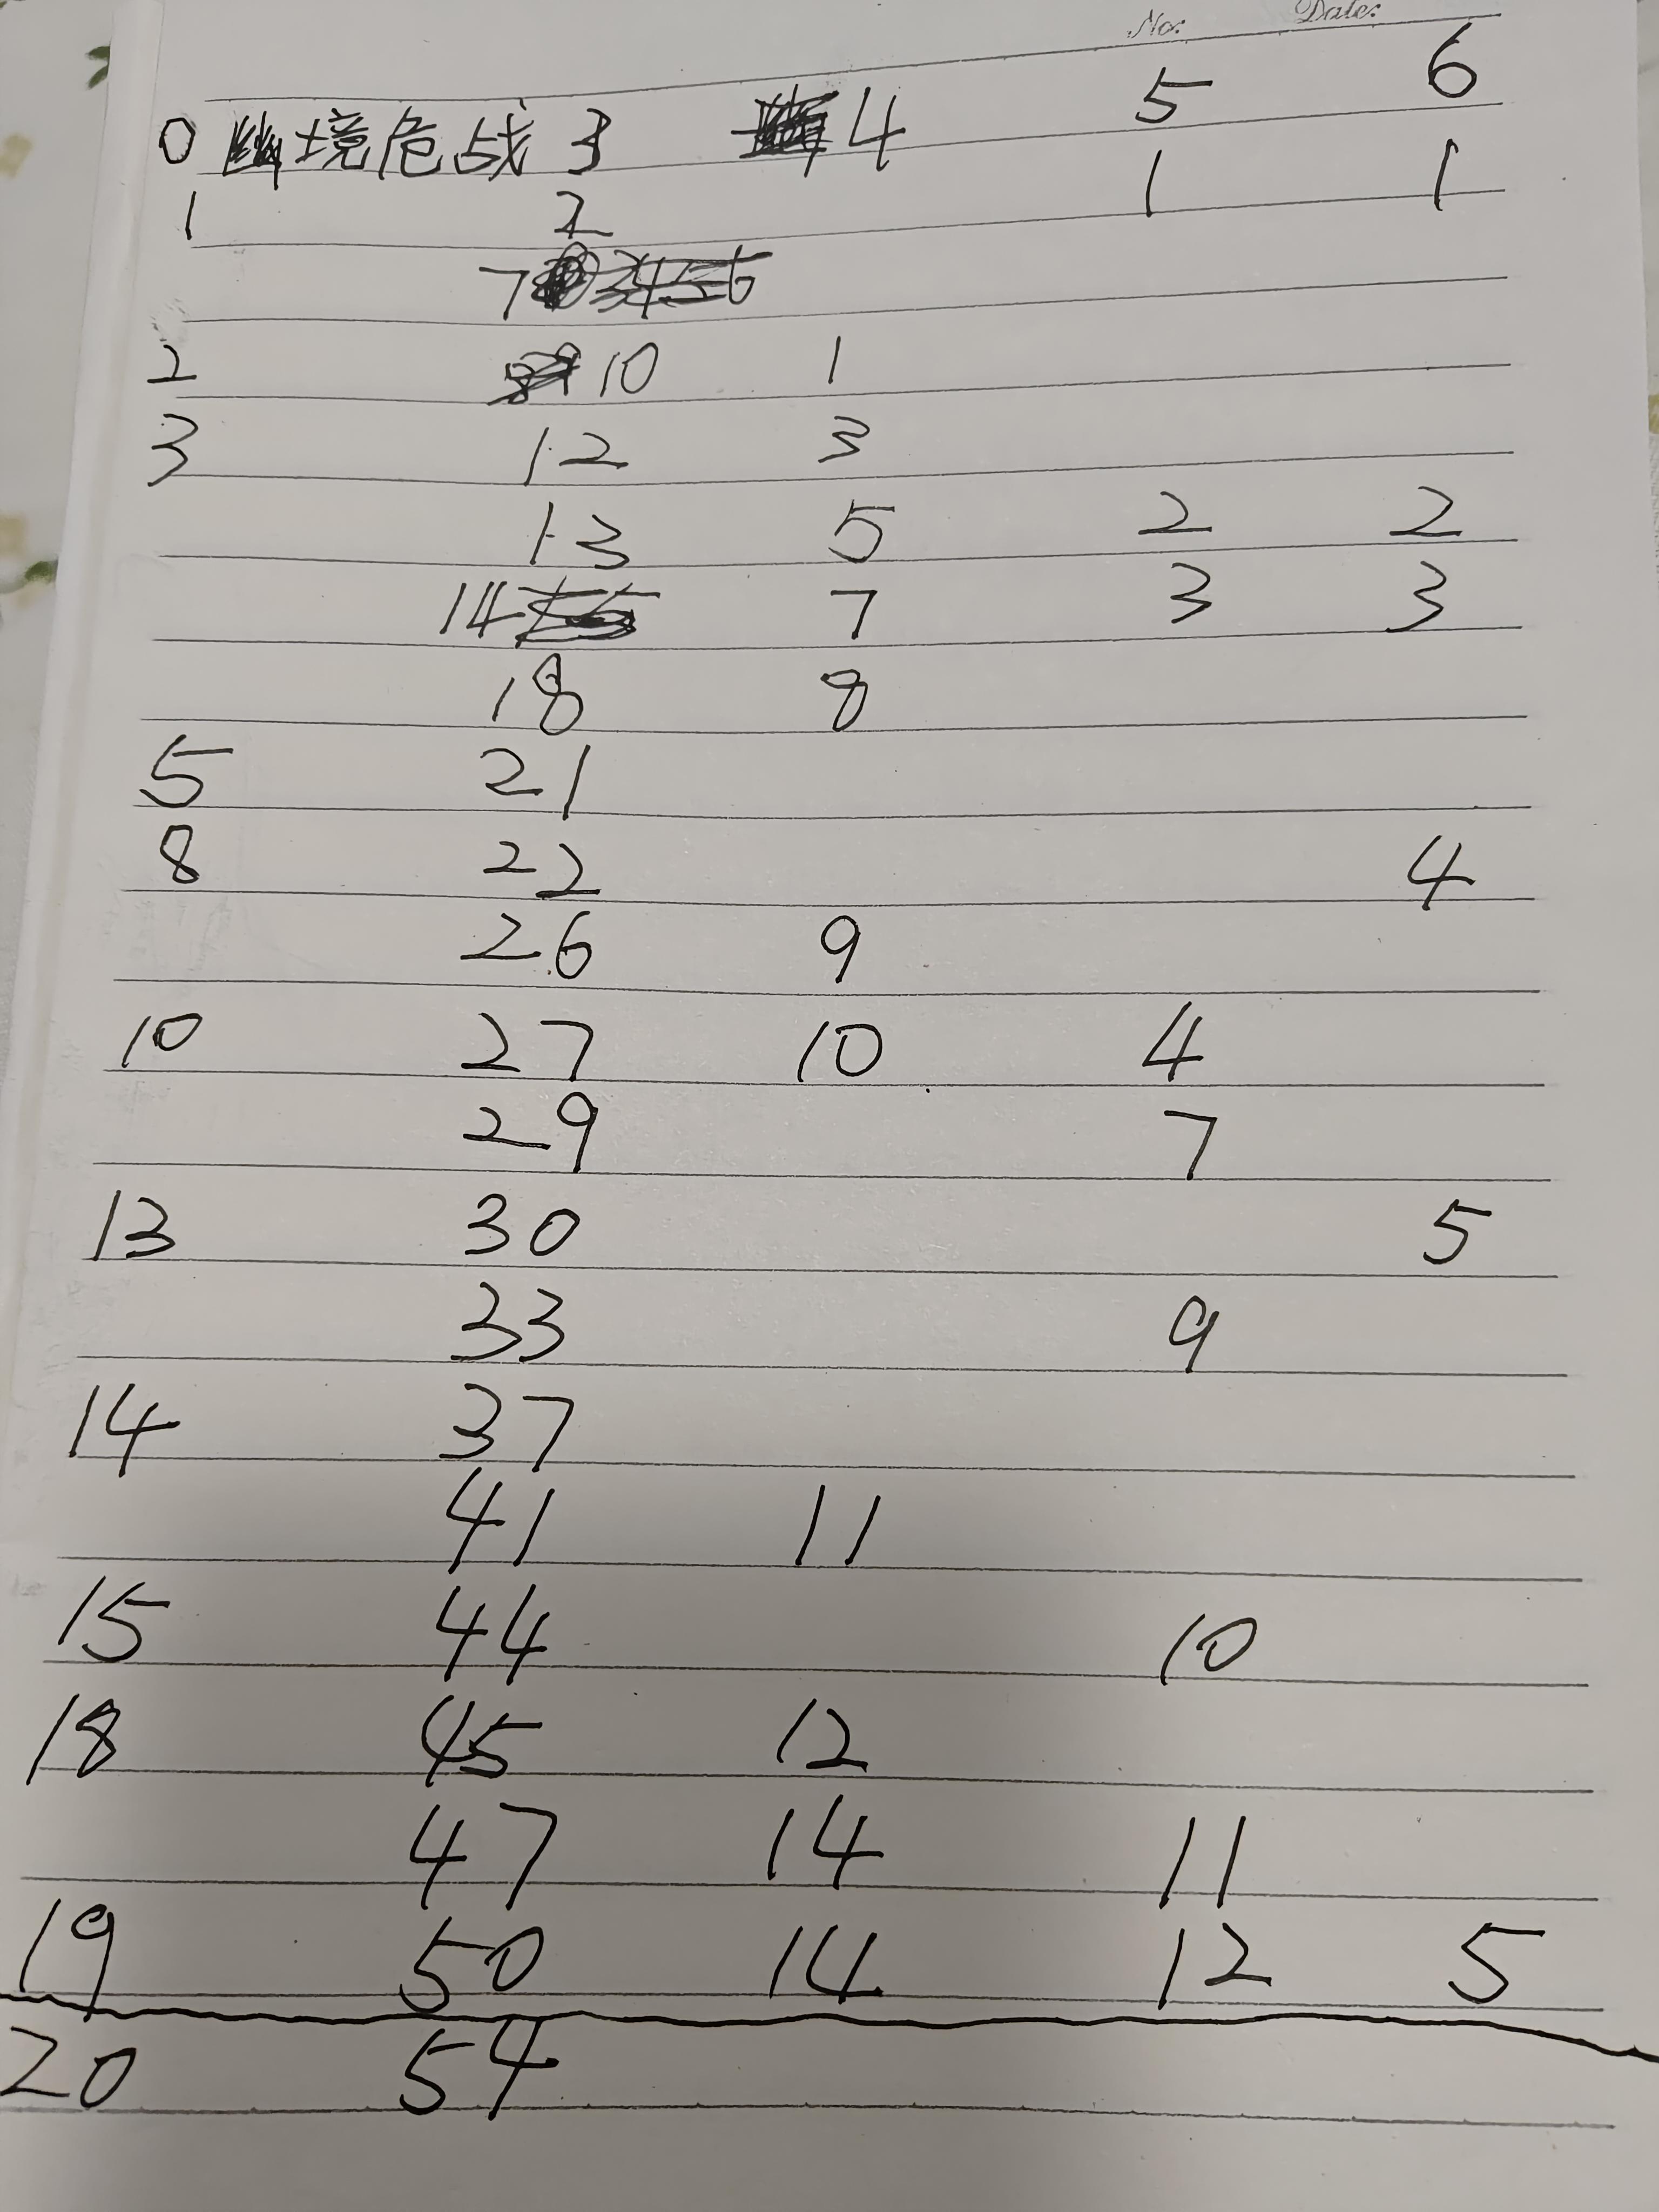 No: Date:
0 幽境危战 3 4 5 6
1 2 1 1
7
2 10 1
3 12 3
13 5 2 2
14 7 3 3
18 8
5 21
8 22 4
26 9
10 27 10 4
29 7
13 30 5
33 9
14 37
41 11
15 44 10
18 45 12
47 14 11
19 50 14 12 5
20 54